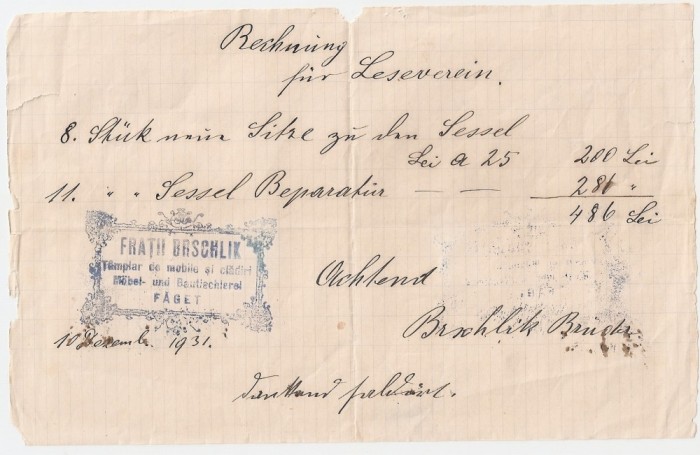 Rechnung
für Leseverein.
8. Stük neue Sitze zu den Sessel
Lei a 25 200 Lei
11. " " Sessel Beparatur — — 286 "
486 Lei
FRAȚII BRSCHLIK
Tâmplar de mobile și clădiri
Möbel- und Bautischlerei
FĂGET
Achtend
Brschlik Bruder
10 Dezemb. 1931.
dankend saldiert.